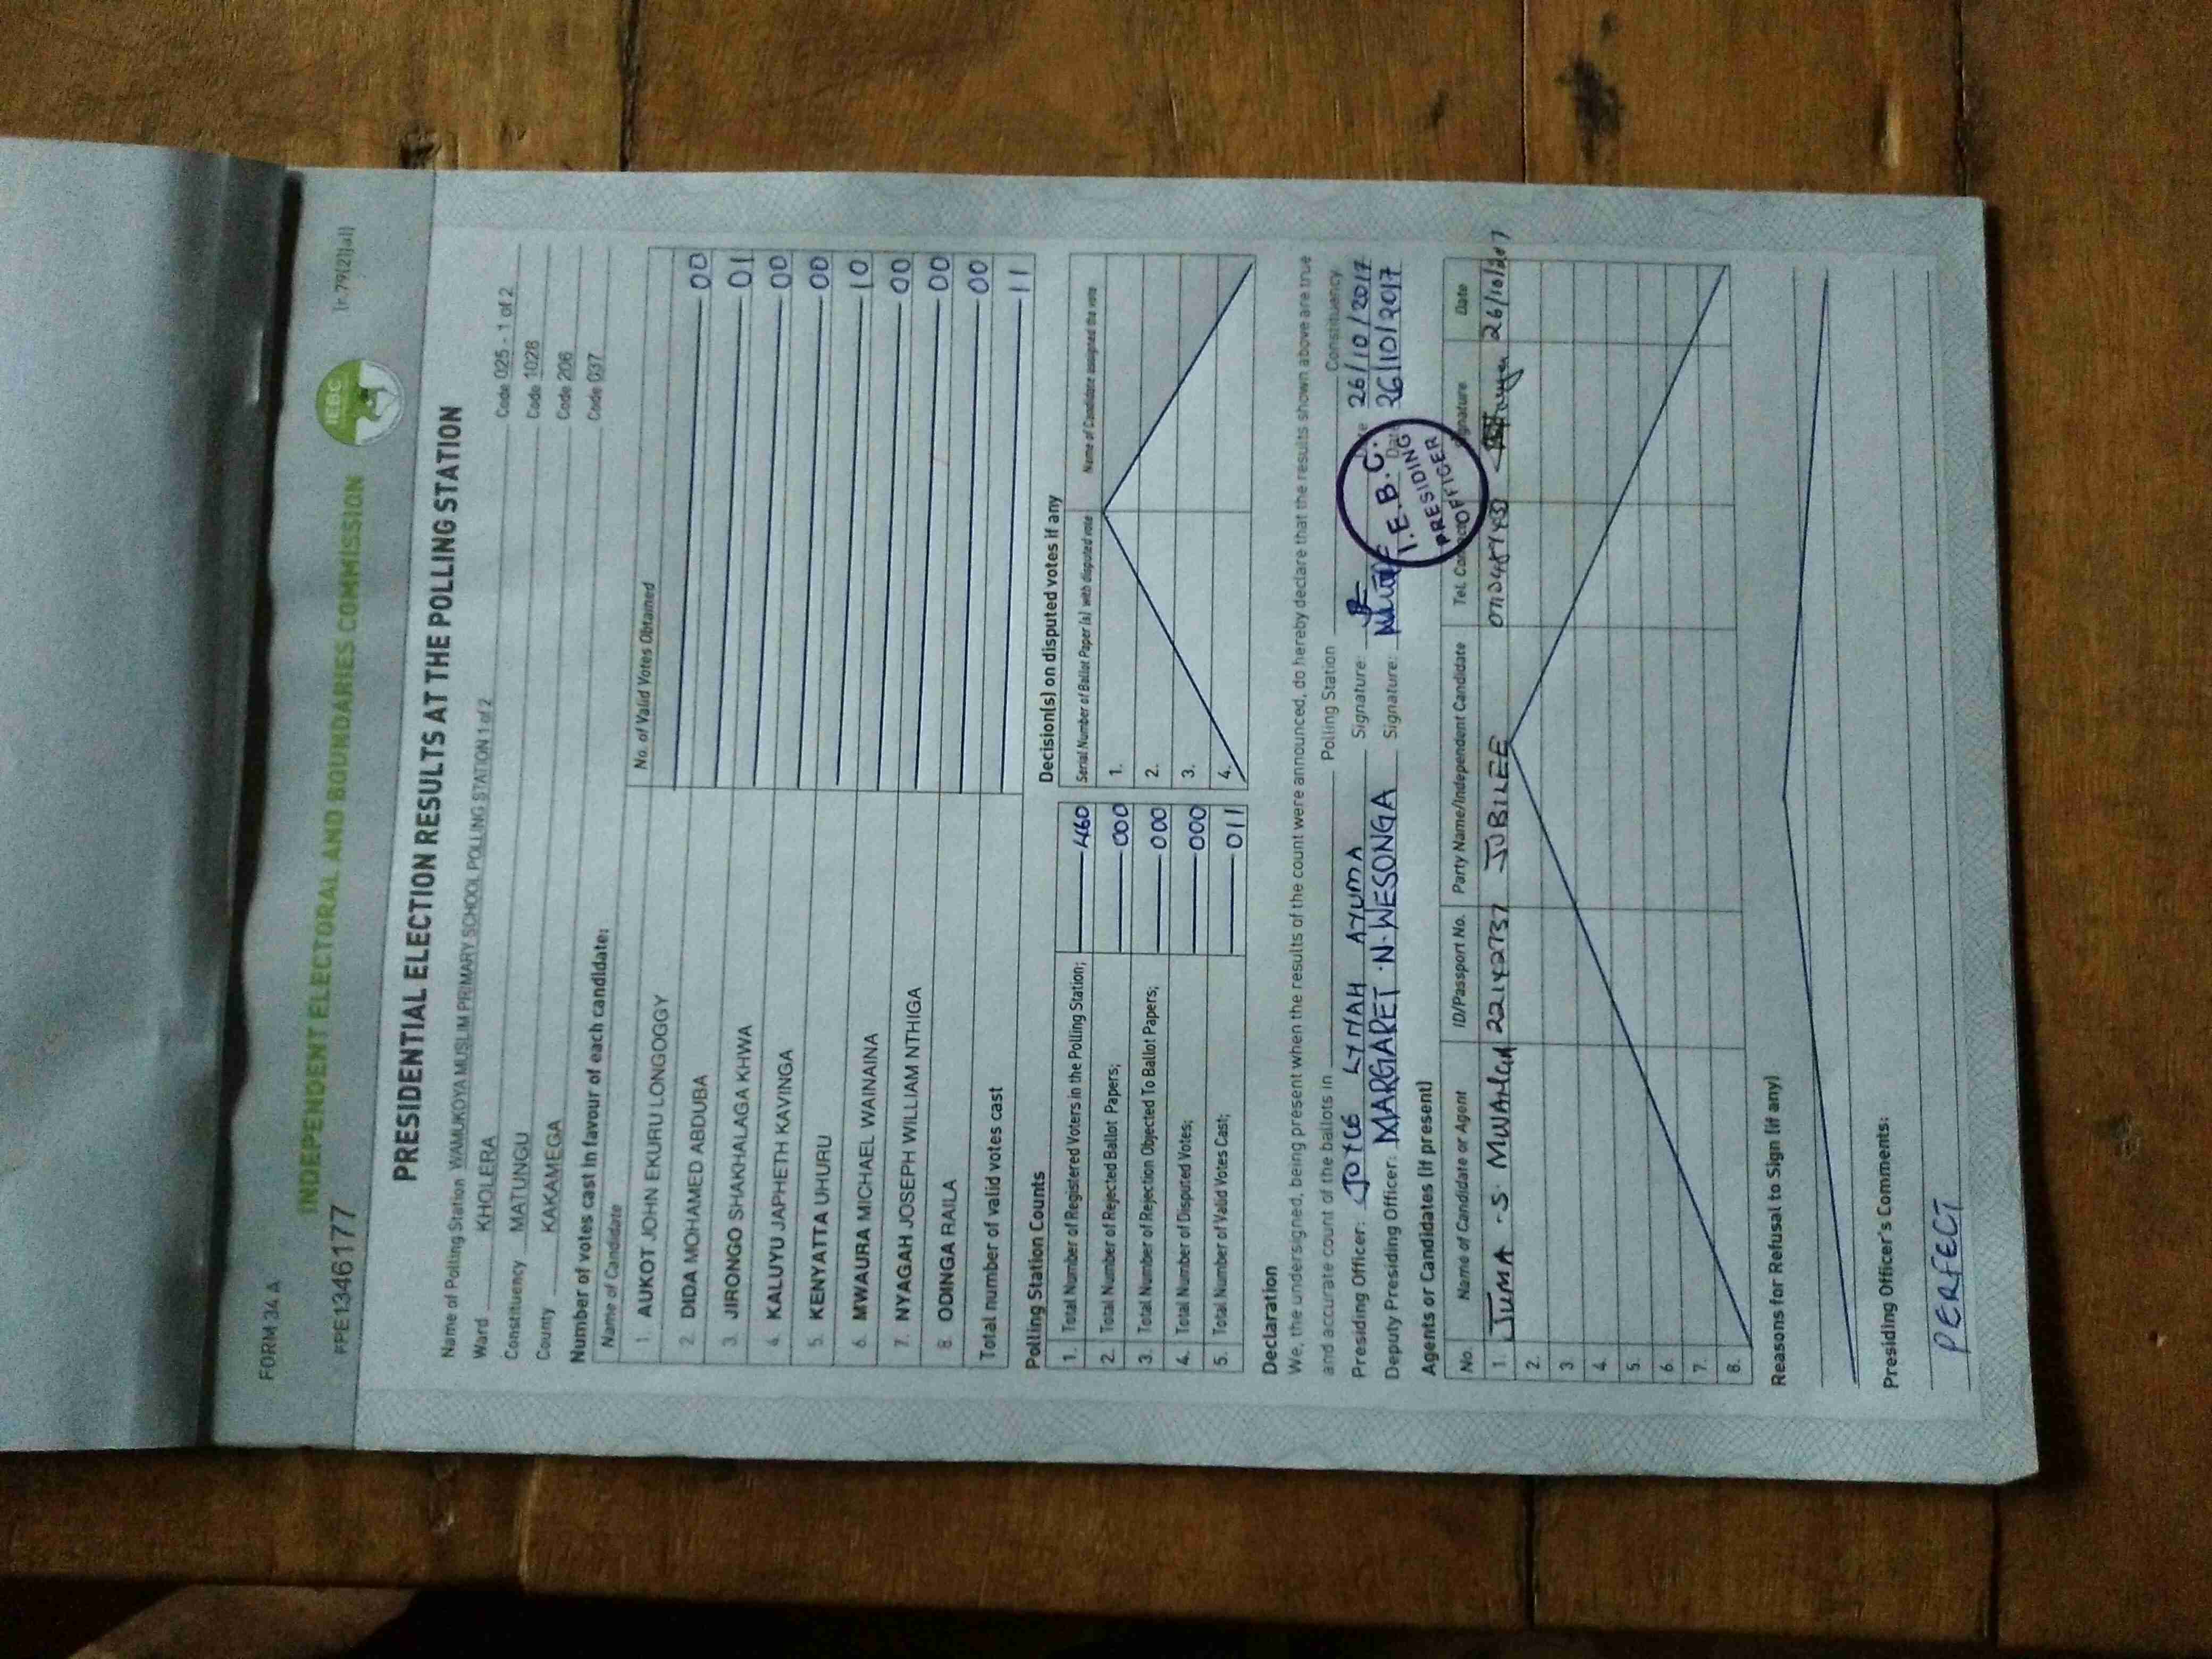 FORM 34 A
INDEPENDENT ELECTORAL AND BOUNDARIES COMMISSION
IEBC
(r.79(2)(a))
PPE1346177
PRESIDENTIAL ELECTION RESULTS AT THE POLLING STATION
Name of Polling Station WAMUKOYA MUSLIM PRIMARY SCHOOL POLLING STATION 1 of 2 Code 025 - 1 of 2
Ward KHOLERA Code 1028
Constituency MATUNGU Code 206
County KAKAMEGA Code 037
Number of votes cast in favour of each candidate:
Name of Candidate No. of Valid Votes Obtained
1. AUKOT JOHN EKURU LONGOGGY 00
2. DIDA MOHAMED ABDUBA 01
3. JIRONGO SHAKHALAGA KHWA 00
4. KALUYU JAPHETH KAVINGA 00
5. KENYATTA UHURU 10
6. MWAURA MICHAEL WAINAINA 00
7. NYAGAH JOSEPH WILLIAM NTHIGA 00
8. ODINGA RAILA 00
Total number of valid votes cast 11
Polling Station Counts
1. Total Number of Registered Voters in the Polling Station; 460
2. Total Number of Rejected Ballot Papers; 000
3. Total Number of Rejection Objected To Ballot Papers; 000
4. Total Number of Disputed Votes; 000
5. Total Number of Valid Votes Cast; 011
Decision(s) on disputed votes if any
Serial Number of Ballot Paper (s) with disputed vote Name of Candidate assigned the vote
1.
2.
3.
4.
Declaration
We, the undersigned, being present when the results of the count were announced, do hereby declare that the results shown above are true
and accurate count of the ballots in Polling Station Constituency
Presiding Officer: JOYCE LYMAH AYUMA Signature: Date 26/10/2017
Deputy Presiding Officer: MARGARET N. WESONGA Signature: Date 26/10/2017
I.E.B.C.
PRESIDING
OFFICER
Agents or Candidates (if present)
No. Name of Candidate or Agent ID/Passport No. Party Name/Independent Candidate Tel. Contact Signature Date
1. JUMA .S. 22142737 JUBILEE 26/10/2017
2.
3.
4.
5.
6.
7.
8.
Reasons for Refusal to Sign (if any)
Presiding Officer's Comments:
PERFECT